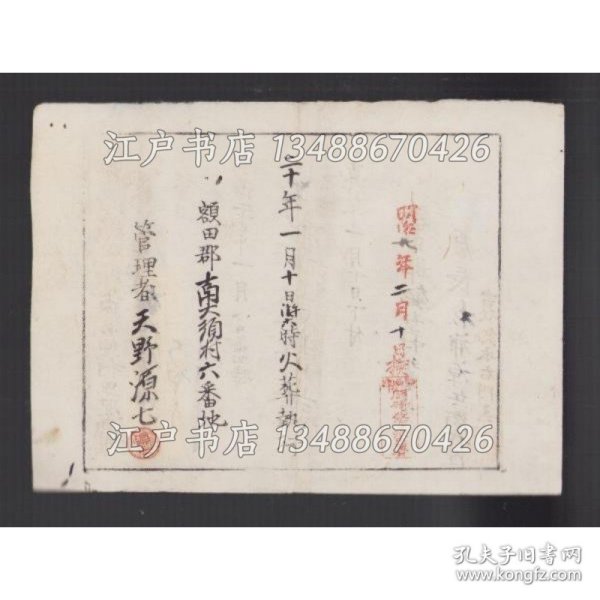 江户书店 13488670426
年二月十日
二十年一月十日 時火葬執行
江户书店 13488670426
額田郡南大須村六番地
管理者 天野源七
江户书店 13488670426
孔夫子旧书网
www.kongfz.com